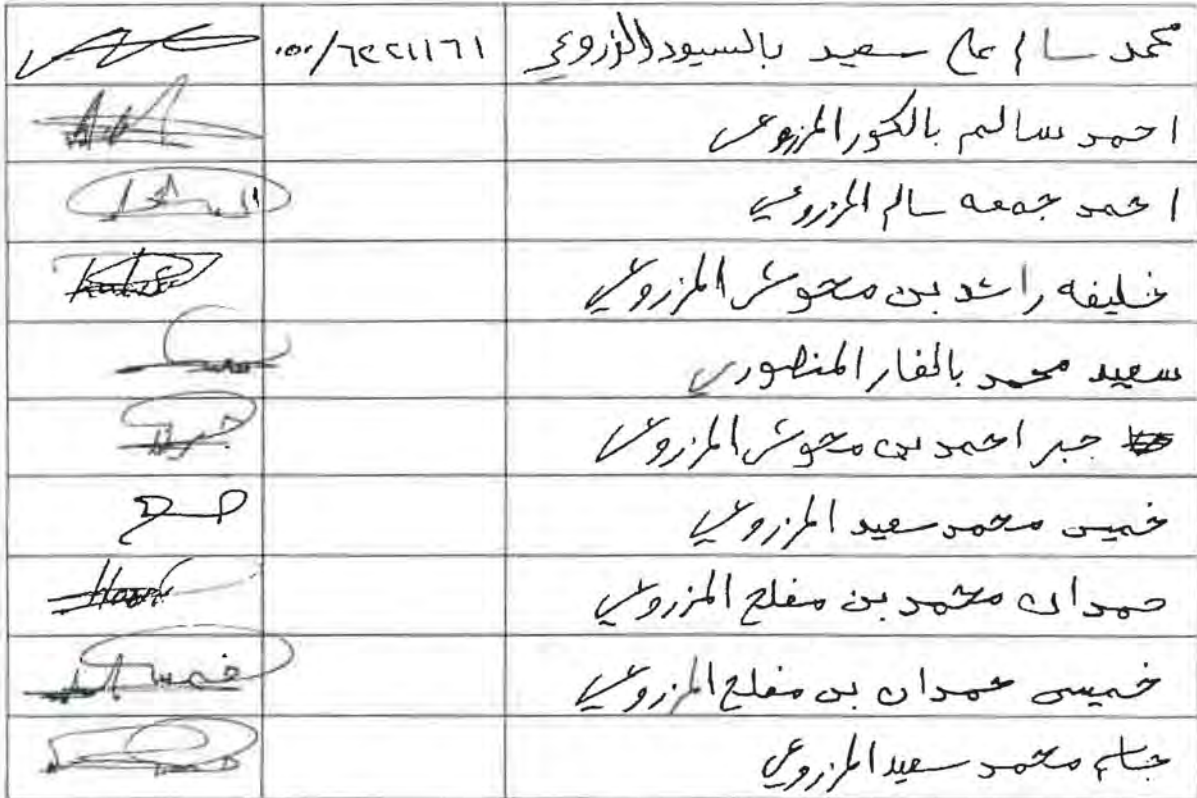 محمد سالم علي سعيد بالسيود المزروعي ٠٥٠/٦٢٢١١٦١
احمد سالم بالكور المزروعي
احمد جمعه سالم المزروعي
خليفه راشد بن محوش المزروعي
سعيد محمد بالفار المنصوري
جبر احمد بن محوش المزروعي
خميس محمد سعيد المزروعي
حمدان محمد بن مفلح المزروعي
خميس حمدان بن مفلح المزروعي
محمد سعيد المزروعي